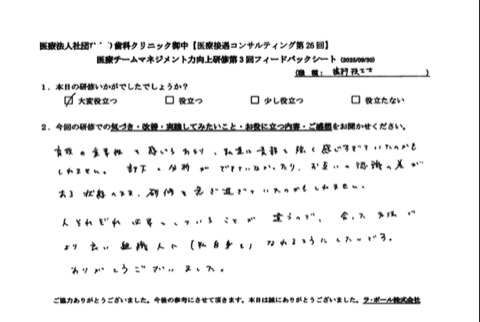 医療法人社団 歯科クリニック御中【医療接遇コンサルティング第26回】
医療チームマネジメント力向上研修第3回フィードバックシート (2025/09/30)
(職種: 歯科技工士 )
1. 本日の研修いかがでしたでしょうか?
☑ 大変役立つ □ 役立つ □ 少し役立つ □ 役立たない
2. 今回の研修での気づき・改善・実践してみたいこと・お役に立つ内容・ご感想をお聞かせください。
責任の 性を感じるあまり、 に責任を強く感じすぎていたのかも
しれません。 分析ができていなかったり、お互いの認識の差が
ある状態のまま、研修を急ぎ過ぎていたのかもしれません。
人それぞれ必要としていることが違うので、合った方法で
より良い組織人に(私自身も)なれるようにしたいです。
ありがとうございました。
ご協力ありがとうございました。今後の参考にさせて頂きます。本日は誠にありがとうございました。ラ・ポール株式会社